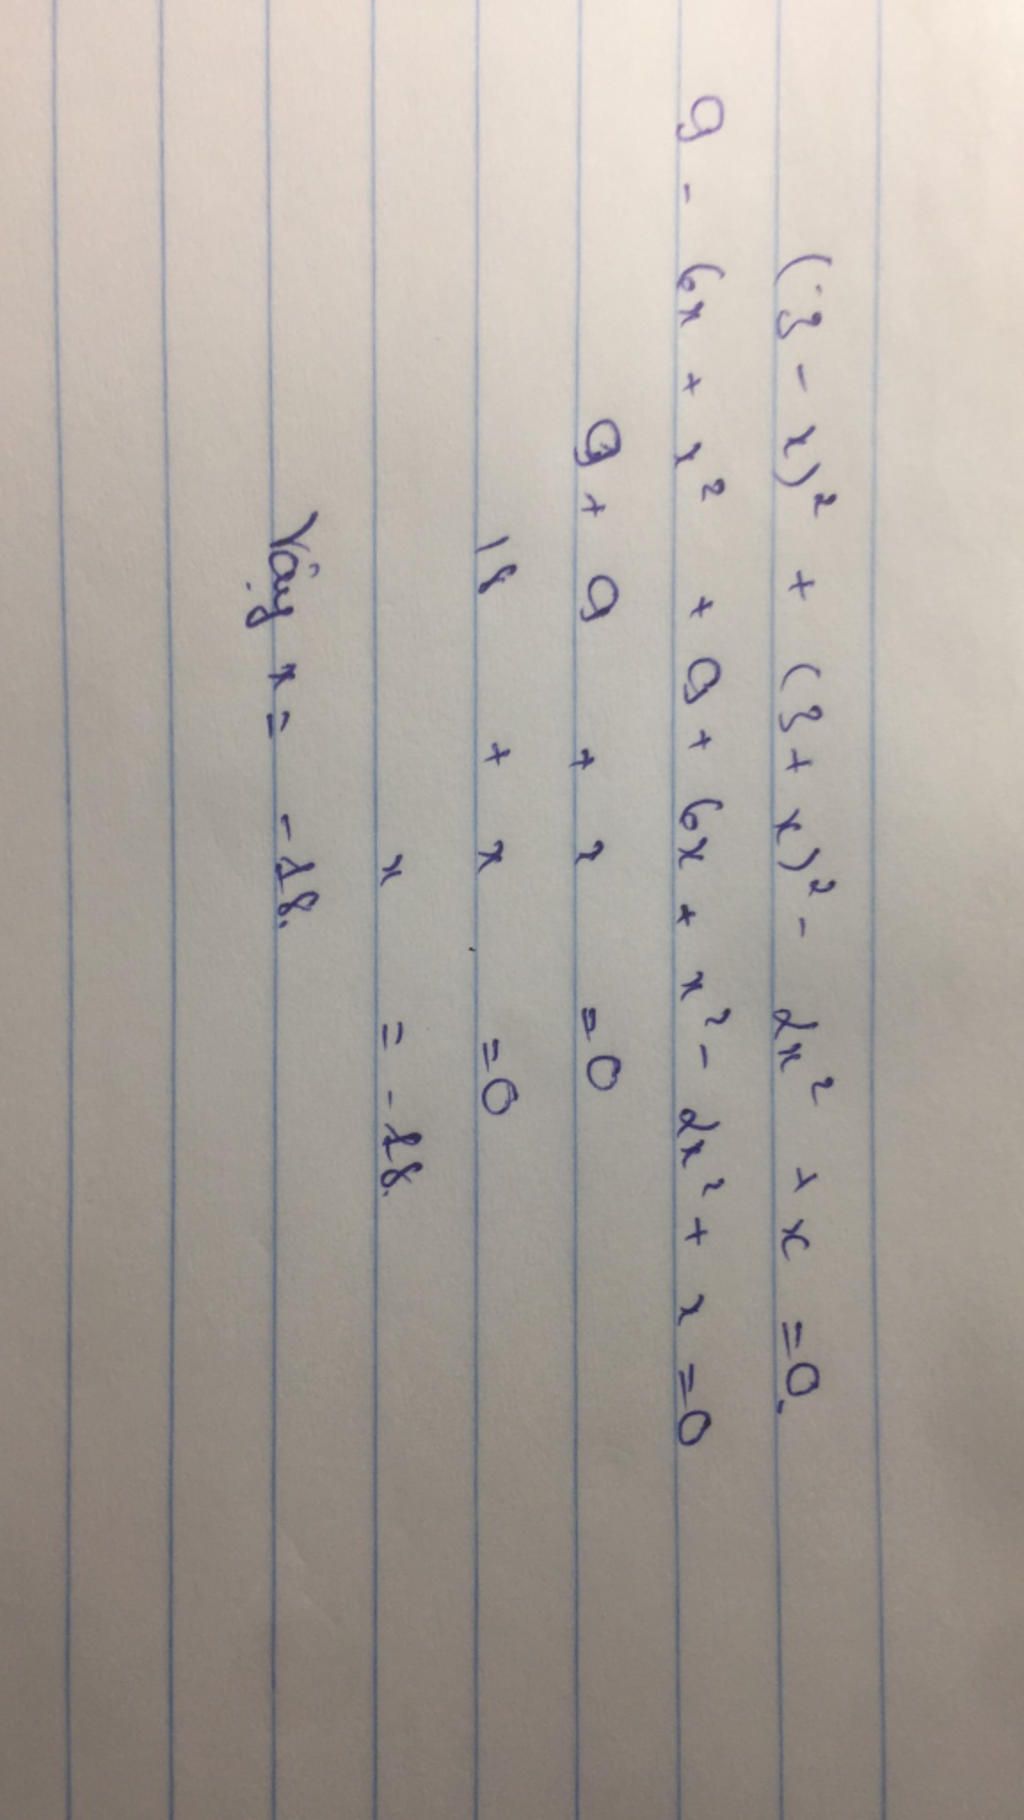 (3 - x)² + (3 + x)² - 2x² + x = 0.
9 - 6x + x² + 9 + 6x + x² - 2x² + x = 0
9 + 9 + x = 0
18 + x = 0
x = -18.
Vậy x = -18.